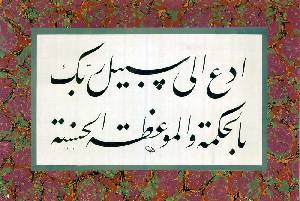 ادع الی سبیل ربک
بالحکمة والموعظة الحسنة